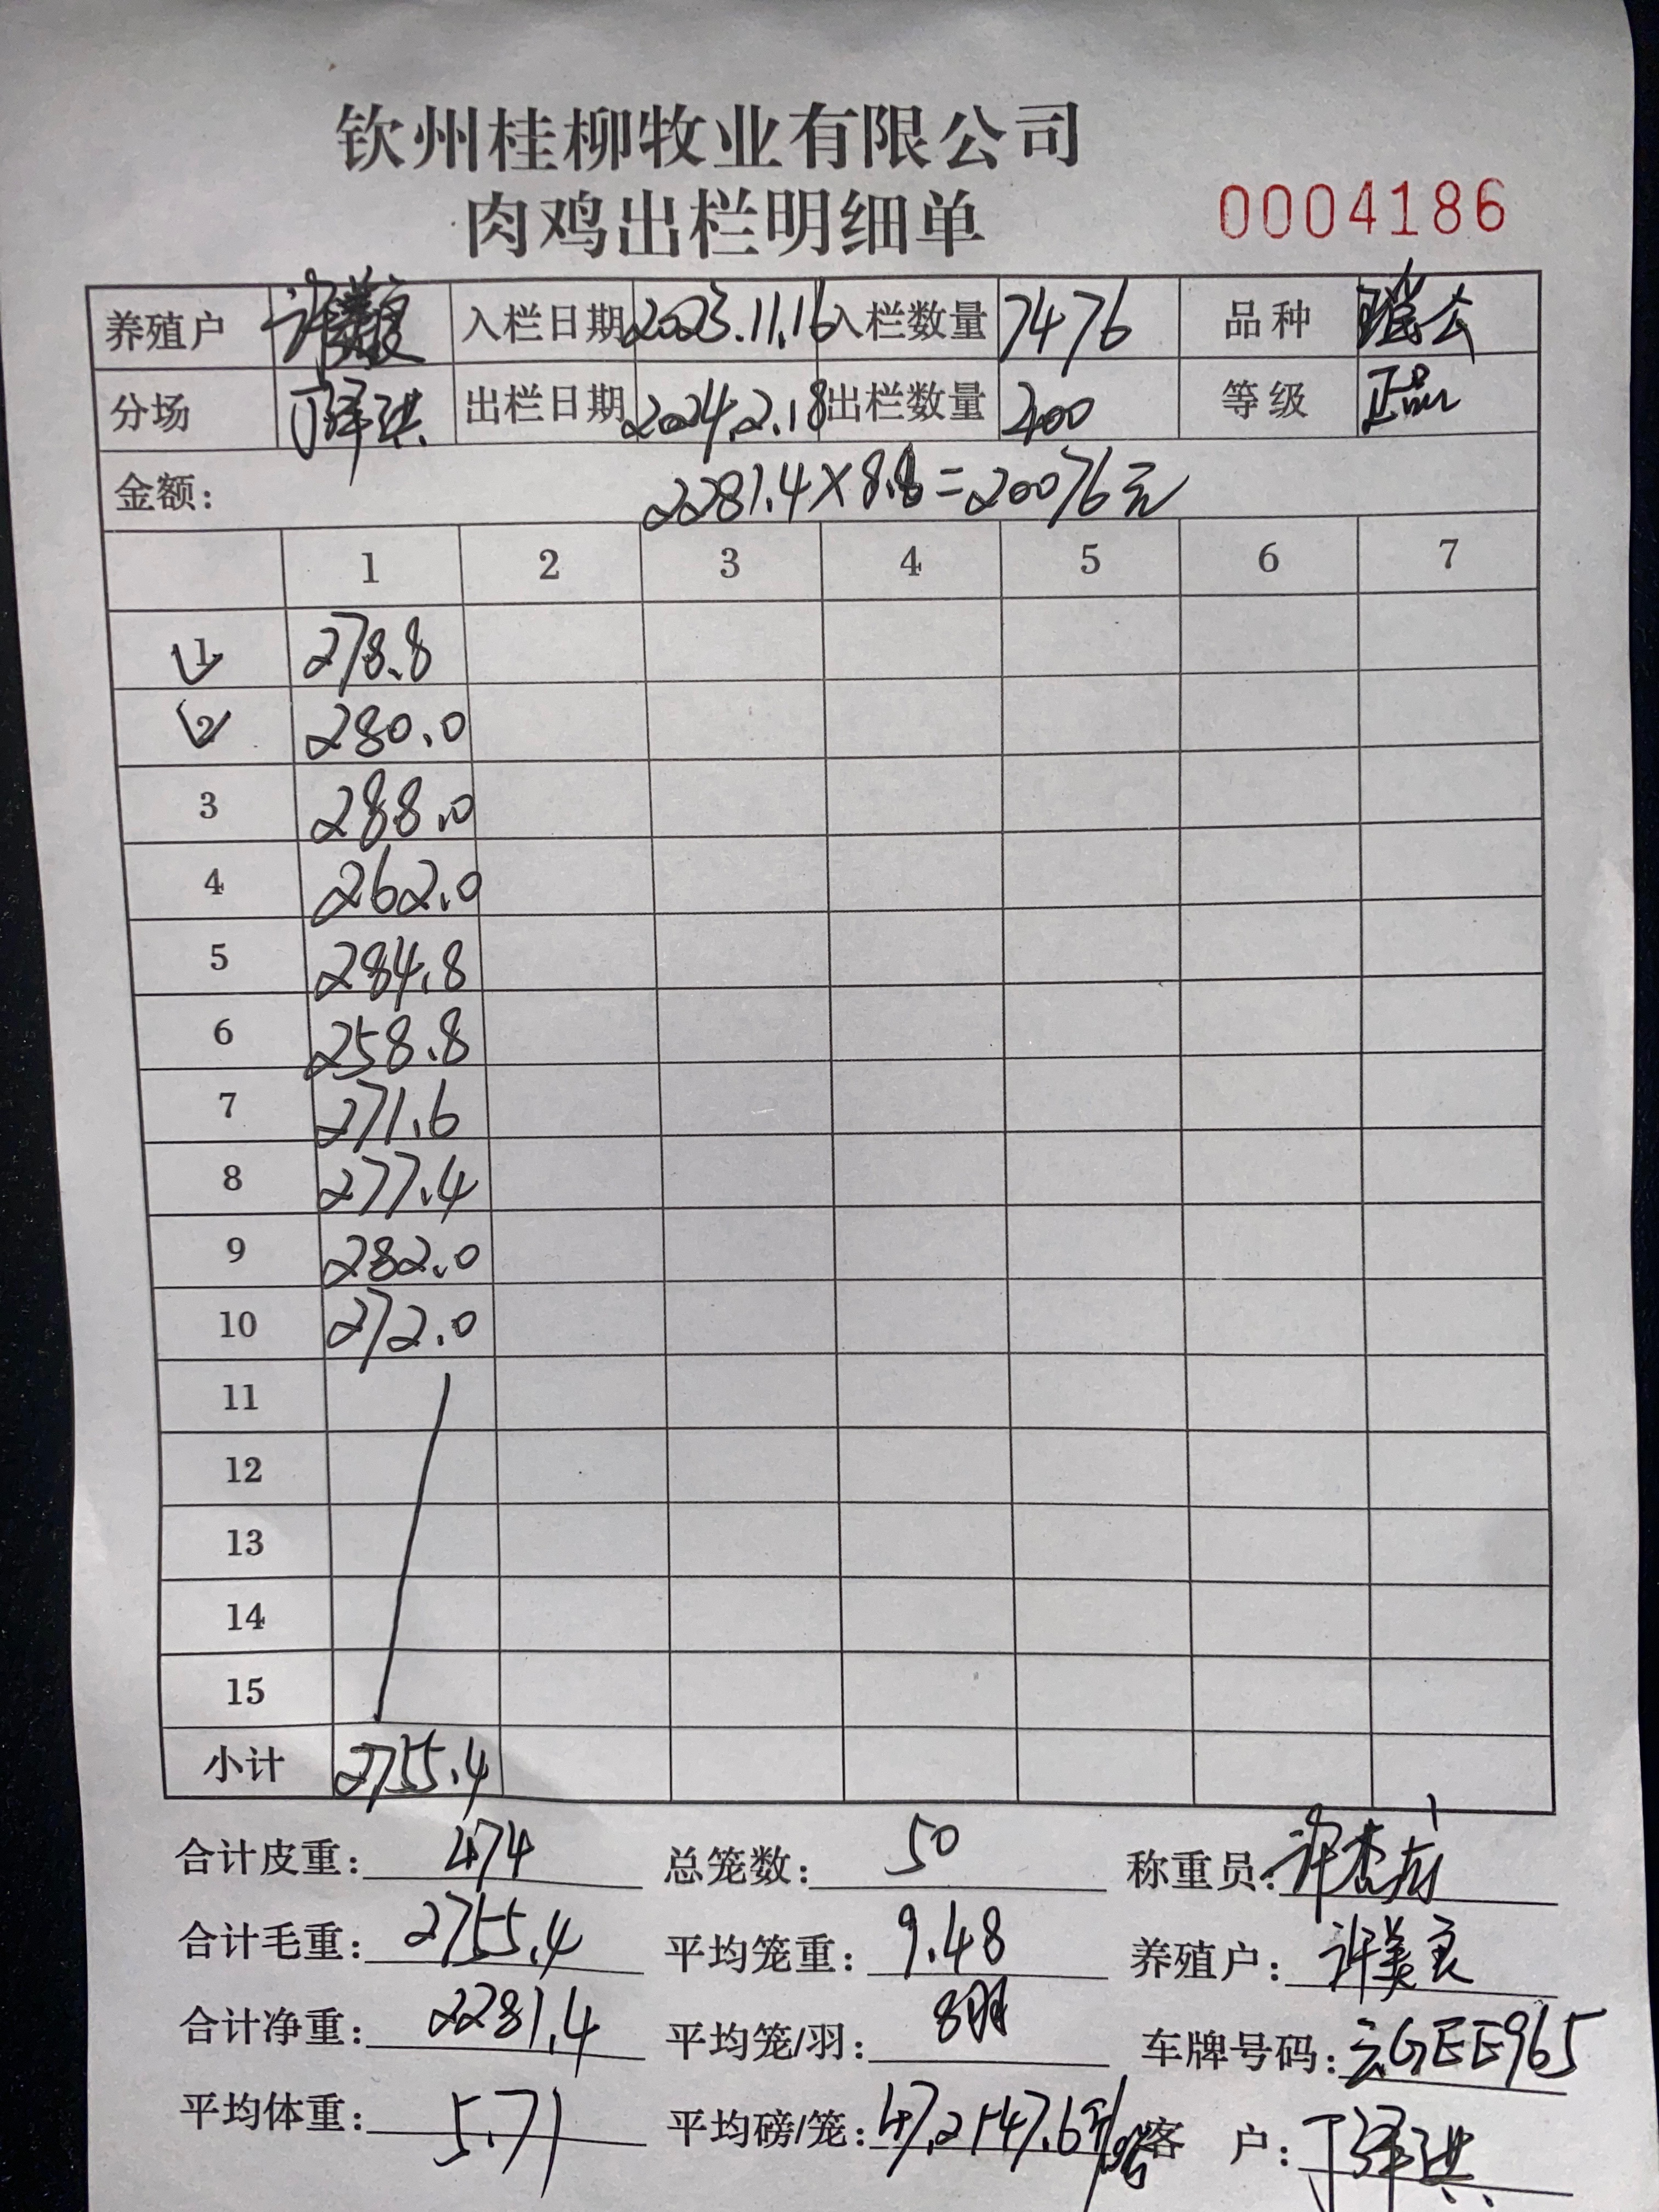 钦州桂柳牧业有限公司
肉鸡出栏明细单 0004186
养殖户 许美良 入栏日期 2023.11.16 入栏数量 7476 品种
分场 丁泽洪 出栏日期 2024.2.18 出栏数量 400 等级 正品
金额: 2281.4×8.8=20076元
1 2 3 4 5 6 7
1 278.8
2 280.0
3 288.0
4 262.0
5 284.8
6 258.8
7 271.6
8 277.4
9 282.0
10 272.0
11
12
13
14
15
小计 2755.4
合计皮重: 474 总笼数: 50 称重员:
合计毛重: 2755.4 平均笼重: 9.48 养殖户: 许美良
合计净重: 2281.4 平均笼/羽: 8羽 车牌号码: 云GEE965
平均体重: 5.71 平均磅/笼: 客 户: 丁泽洪